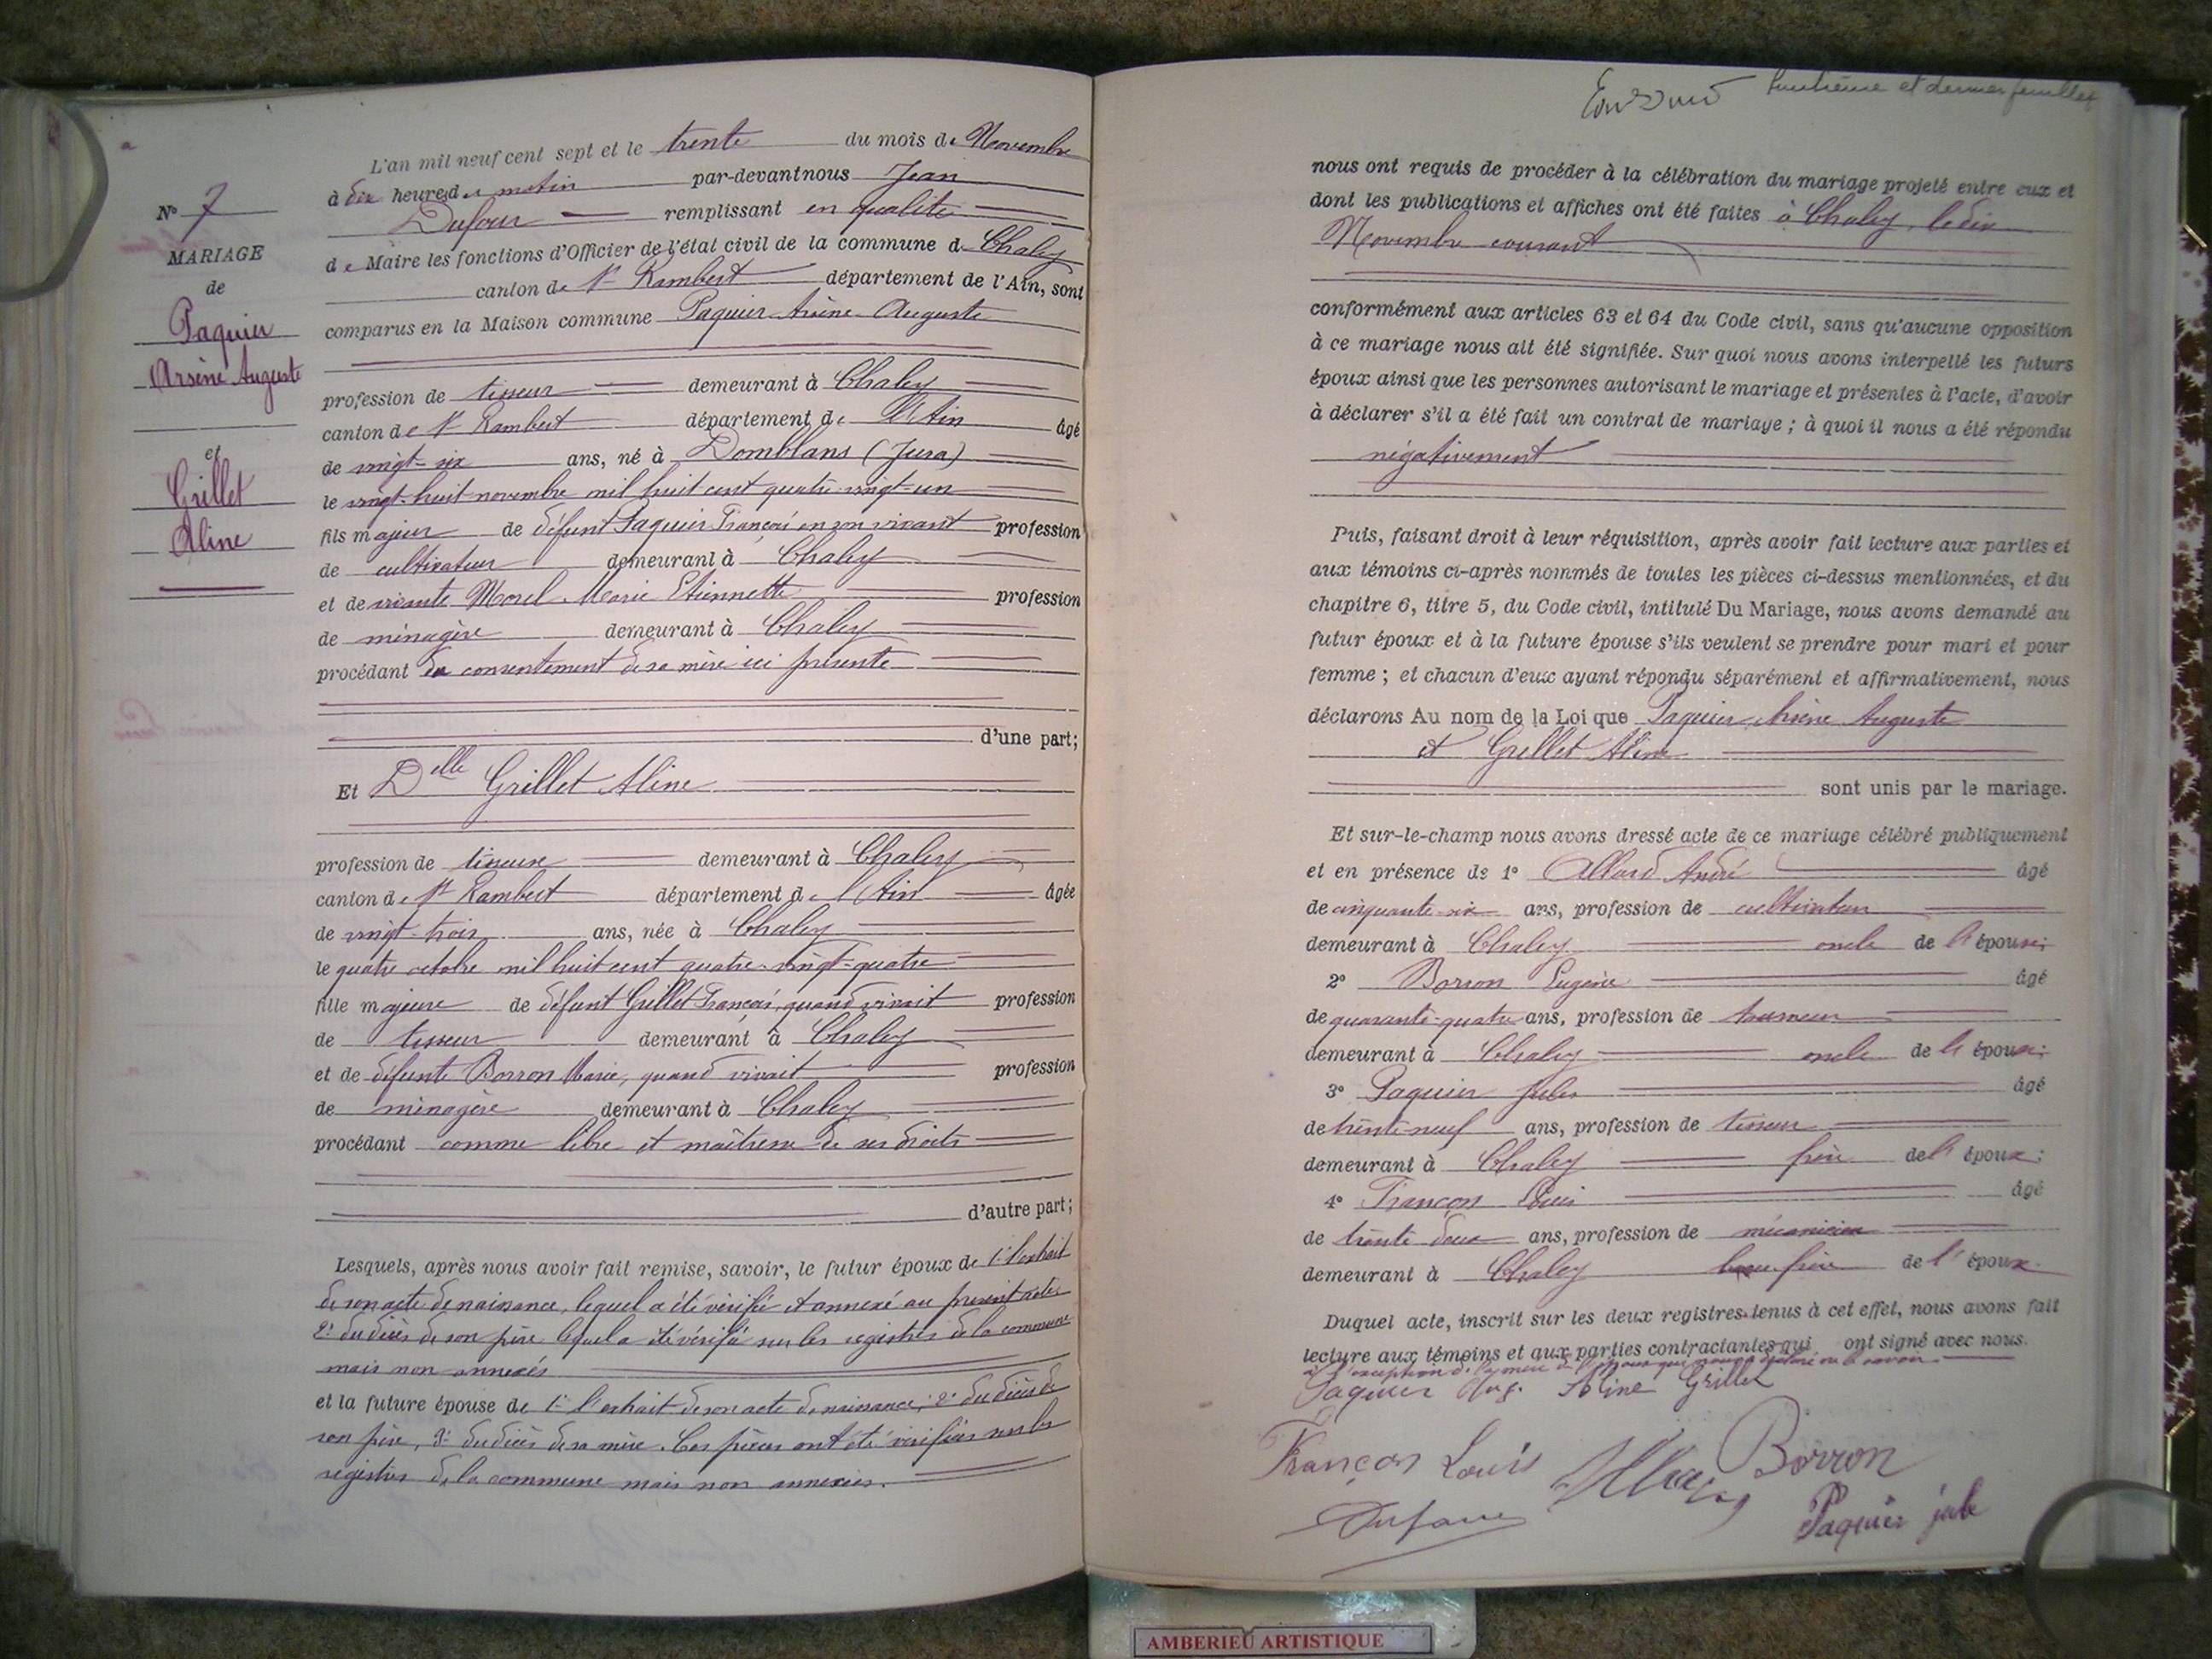 L'an mil neuf cent sept et le trente du mois de Novembre
à dix heures du matin par-devant nous Jean
Dufour remplissant en qualité
de Maire les fonctions d'Officier de l'état civil de la commune de Chaley
canton de St Rambert département de l'Ain, sont
comparus en la Maison commune Paquier Arsène Auguste
N° 7
MARIAGE
de
Paquier
Arsène Auguste
et
Grillet
Aline
profession de tisseur demeurant à Chaley
canton de St Rambert département de l'Ain âgé
de vingt-six ans, né à Domblans (Jura)
le vingt-huit novembre mil huit cent quatre-vingt-un
fils majeur de défunt Paquier François en son vivant profession
de cultivateur demeurant à Chaley
et de vivante Morel Marie Etiennette profession
de ménagère demeurant à Chaley
procédant du consentement de sa mère ici présente
d'une part;
Et Delle Grillet Aline
profession de tisseuse demeurant à Chaley
canton de St Rambert département de l'Ain âgée
de vingt-trois ans, née à Chaley
le quatre octobre mil huit cent quatre-vingt-quatre
fille majeure de défunt Grillet François, quand vivait profession
de tisseur demeurant à Chaley
et de défunte Borron Marie, quand vivait profession
de ménagère demeurant à Chaley
procédant comme libre et maîtresse de ses droits
d'autre part;
Lesquels, après nous avoir fait remise, savoir, le futur époux de 1° l'extrait
de son acte de naissance, lequel a été vérifié et annexé au présent acte
2° du décès de son père lequel a été vérifié sur les registres de la commune
mais non annexés
et la future épouse de 1° l'extrait de son acte de naissance; 2° du décès de
son père, 3° du décès de sa mère. Ces pièces ont été vérifiées sur les
registres de la commune mais non annexées.
huitième et dernier feuillet
nous ont requis de procéder à la célébration du mariage projeté entre eux et
dont les publications et affiches ont été faites à Chaley, le dix
Novembre courant
conformément aux articles 63 et 64 du Code civil, sans qu'aucune opposition
à ce mariage nous ait été signifiée. Sur quoi nous avons interpellé les futurs
époux ainsi que les personnes autorisant le mariage et présentes à l'acte, d'avoir
à déclarer s'il a été fait un contrat de mariage ; à quoi il nous a été répondu
négativement
Puis, faisant droit à leur réquisition, après avoir fait lecture aux parties et
aux témoins ci-après nommés de toutes les pièces ci-dessus mentionnées, et du
chapitre 6, titre 5, du Code civil, intitulé Du Mariage, nous avons demandé au
futur époux et à la future épouse s'ils veulent se prendre pour mari et pour
femme ; et chacun d'eux ayant répondu séparément et affirmativement, nous
déclarons Au nom de la Loi que Paquier Arsène Auguste
et Grillet Aline
sont unis par le mariage.
Et sur-le-champ nous avons dressé acte de ce mariage célébré publiquement
et en présence de 1° Allard André âgé
de cinquante-six ans, profession de cultivateur
demeurant à Chaley oncle de l'épouse;
2° Borron Eugène âgé
de quarante-quatre ans, profession de tourneur
demeurant à Chaley oncle de l'épouse;
3° Paquier Jules âgé
de trente-neuf ans, profession de tisseur
demeurant à Chaley frère de l'époux;
4° Françon Louis âgé
de trente deux ans, profession de mécanicien
demeurant à Chaley beau-frère de l'époux.
Duquel acte, inscrit sur les deux registres tenus à cet effet, nous avons fait
lecture aux témoins et aux parties contractantes qui ont signé avec nous.
à l'exception de la mère de l'époux qui nous a déclaré ne le savoir.
Paquier Aug. Aline Grillet
Françon Louis Borron
Dufour Paquier jule
AMBERIEU ARTISTIQUE